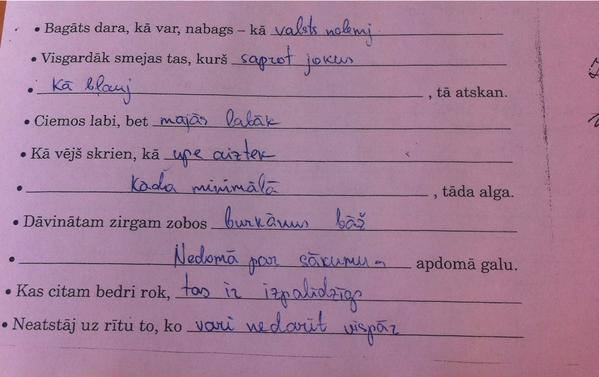 • Bagāts dara, kā var, nabags – kā valsts nolemj
• Visgardāk smejas tas, kurš saprot jokus
• Kā bļauj, tā atskan.
• Ciemos labi, bet majās labāk
• Kā vējš skrien, kā upe aiztek
• Kāda minimālā, tāda alga.
• Dāvinātam zirgam zobos burkānus bāž
• Nedomā par sākumu – apdomā galu.
• Kas citam bedri rok, tas ir izpalīdzīgs
• Neatstāj uz rītu to, ko vari nedarīt vispār